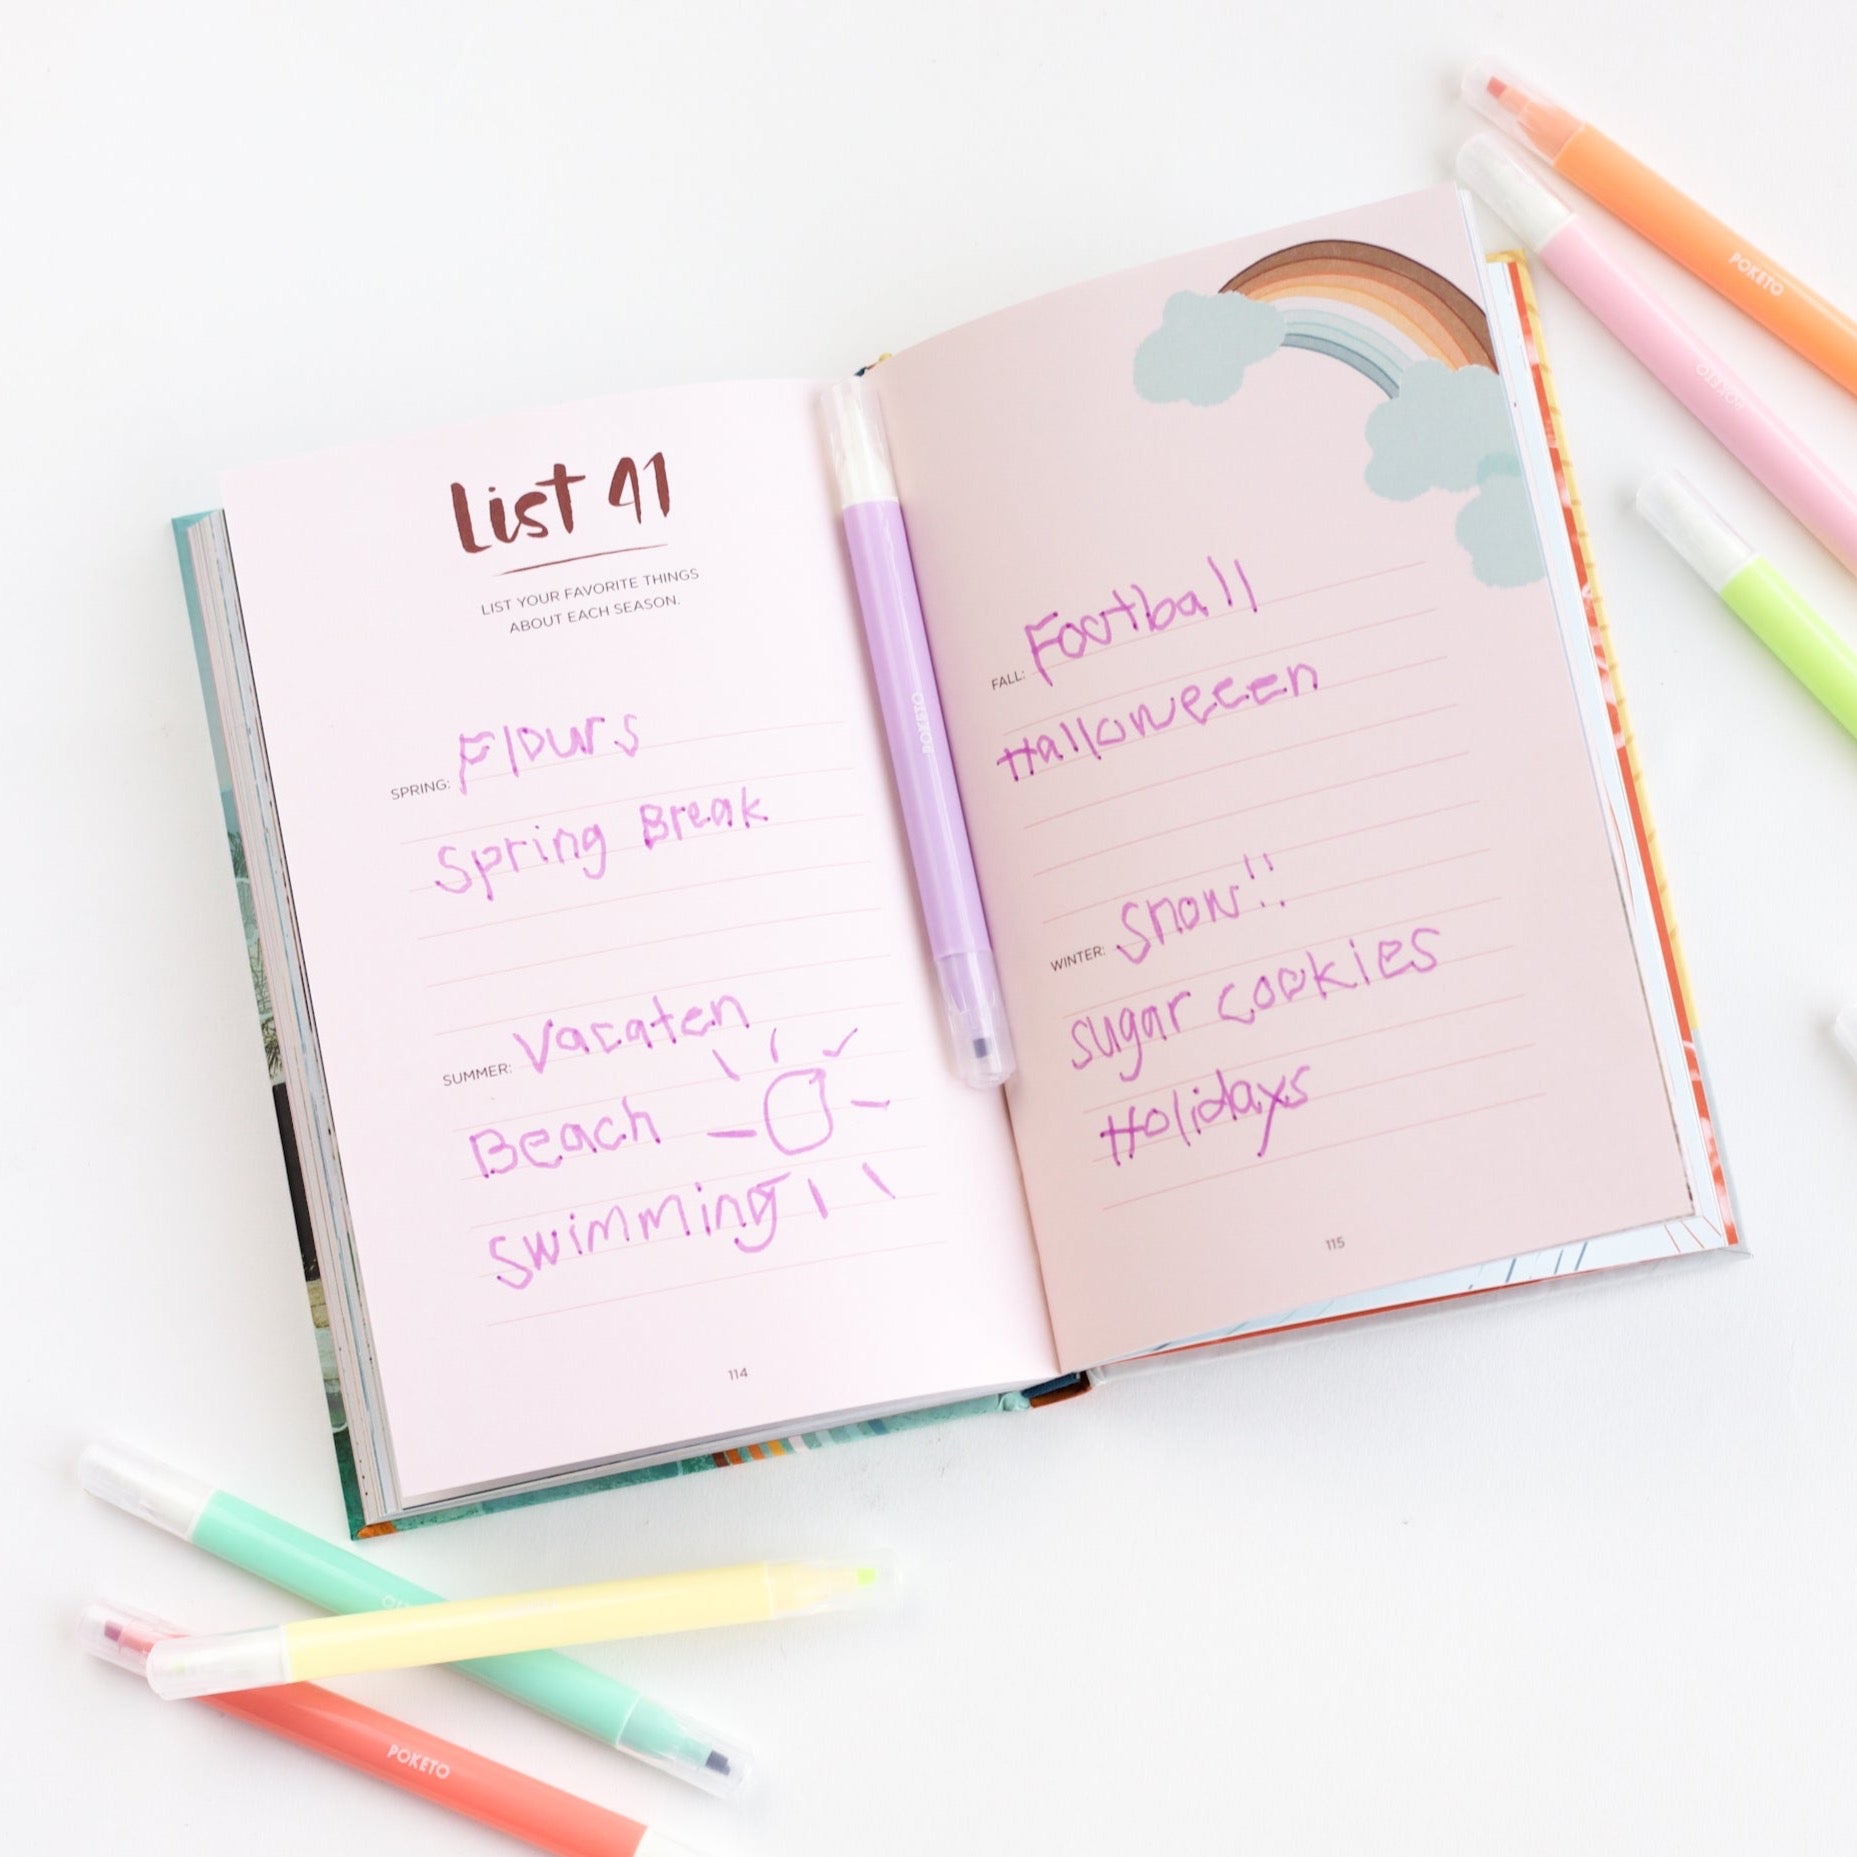 List 41
LIST YOUR FAVORITE THINGS
ABOUT EACH SEASON.
SPRING: Flours
Spring Break
SUMMER: Vacaten
Beach
Swimming
114
FALL: Football
Halloweeen
WINTER: Snow!!
Sugar cookies
Holidays
115
POKETO
POKETO
POKETO
POKETO
POKETO